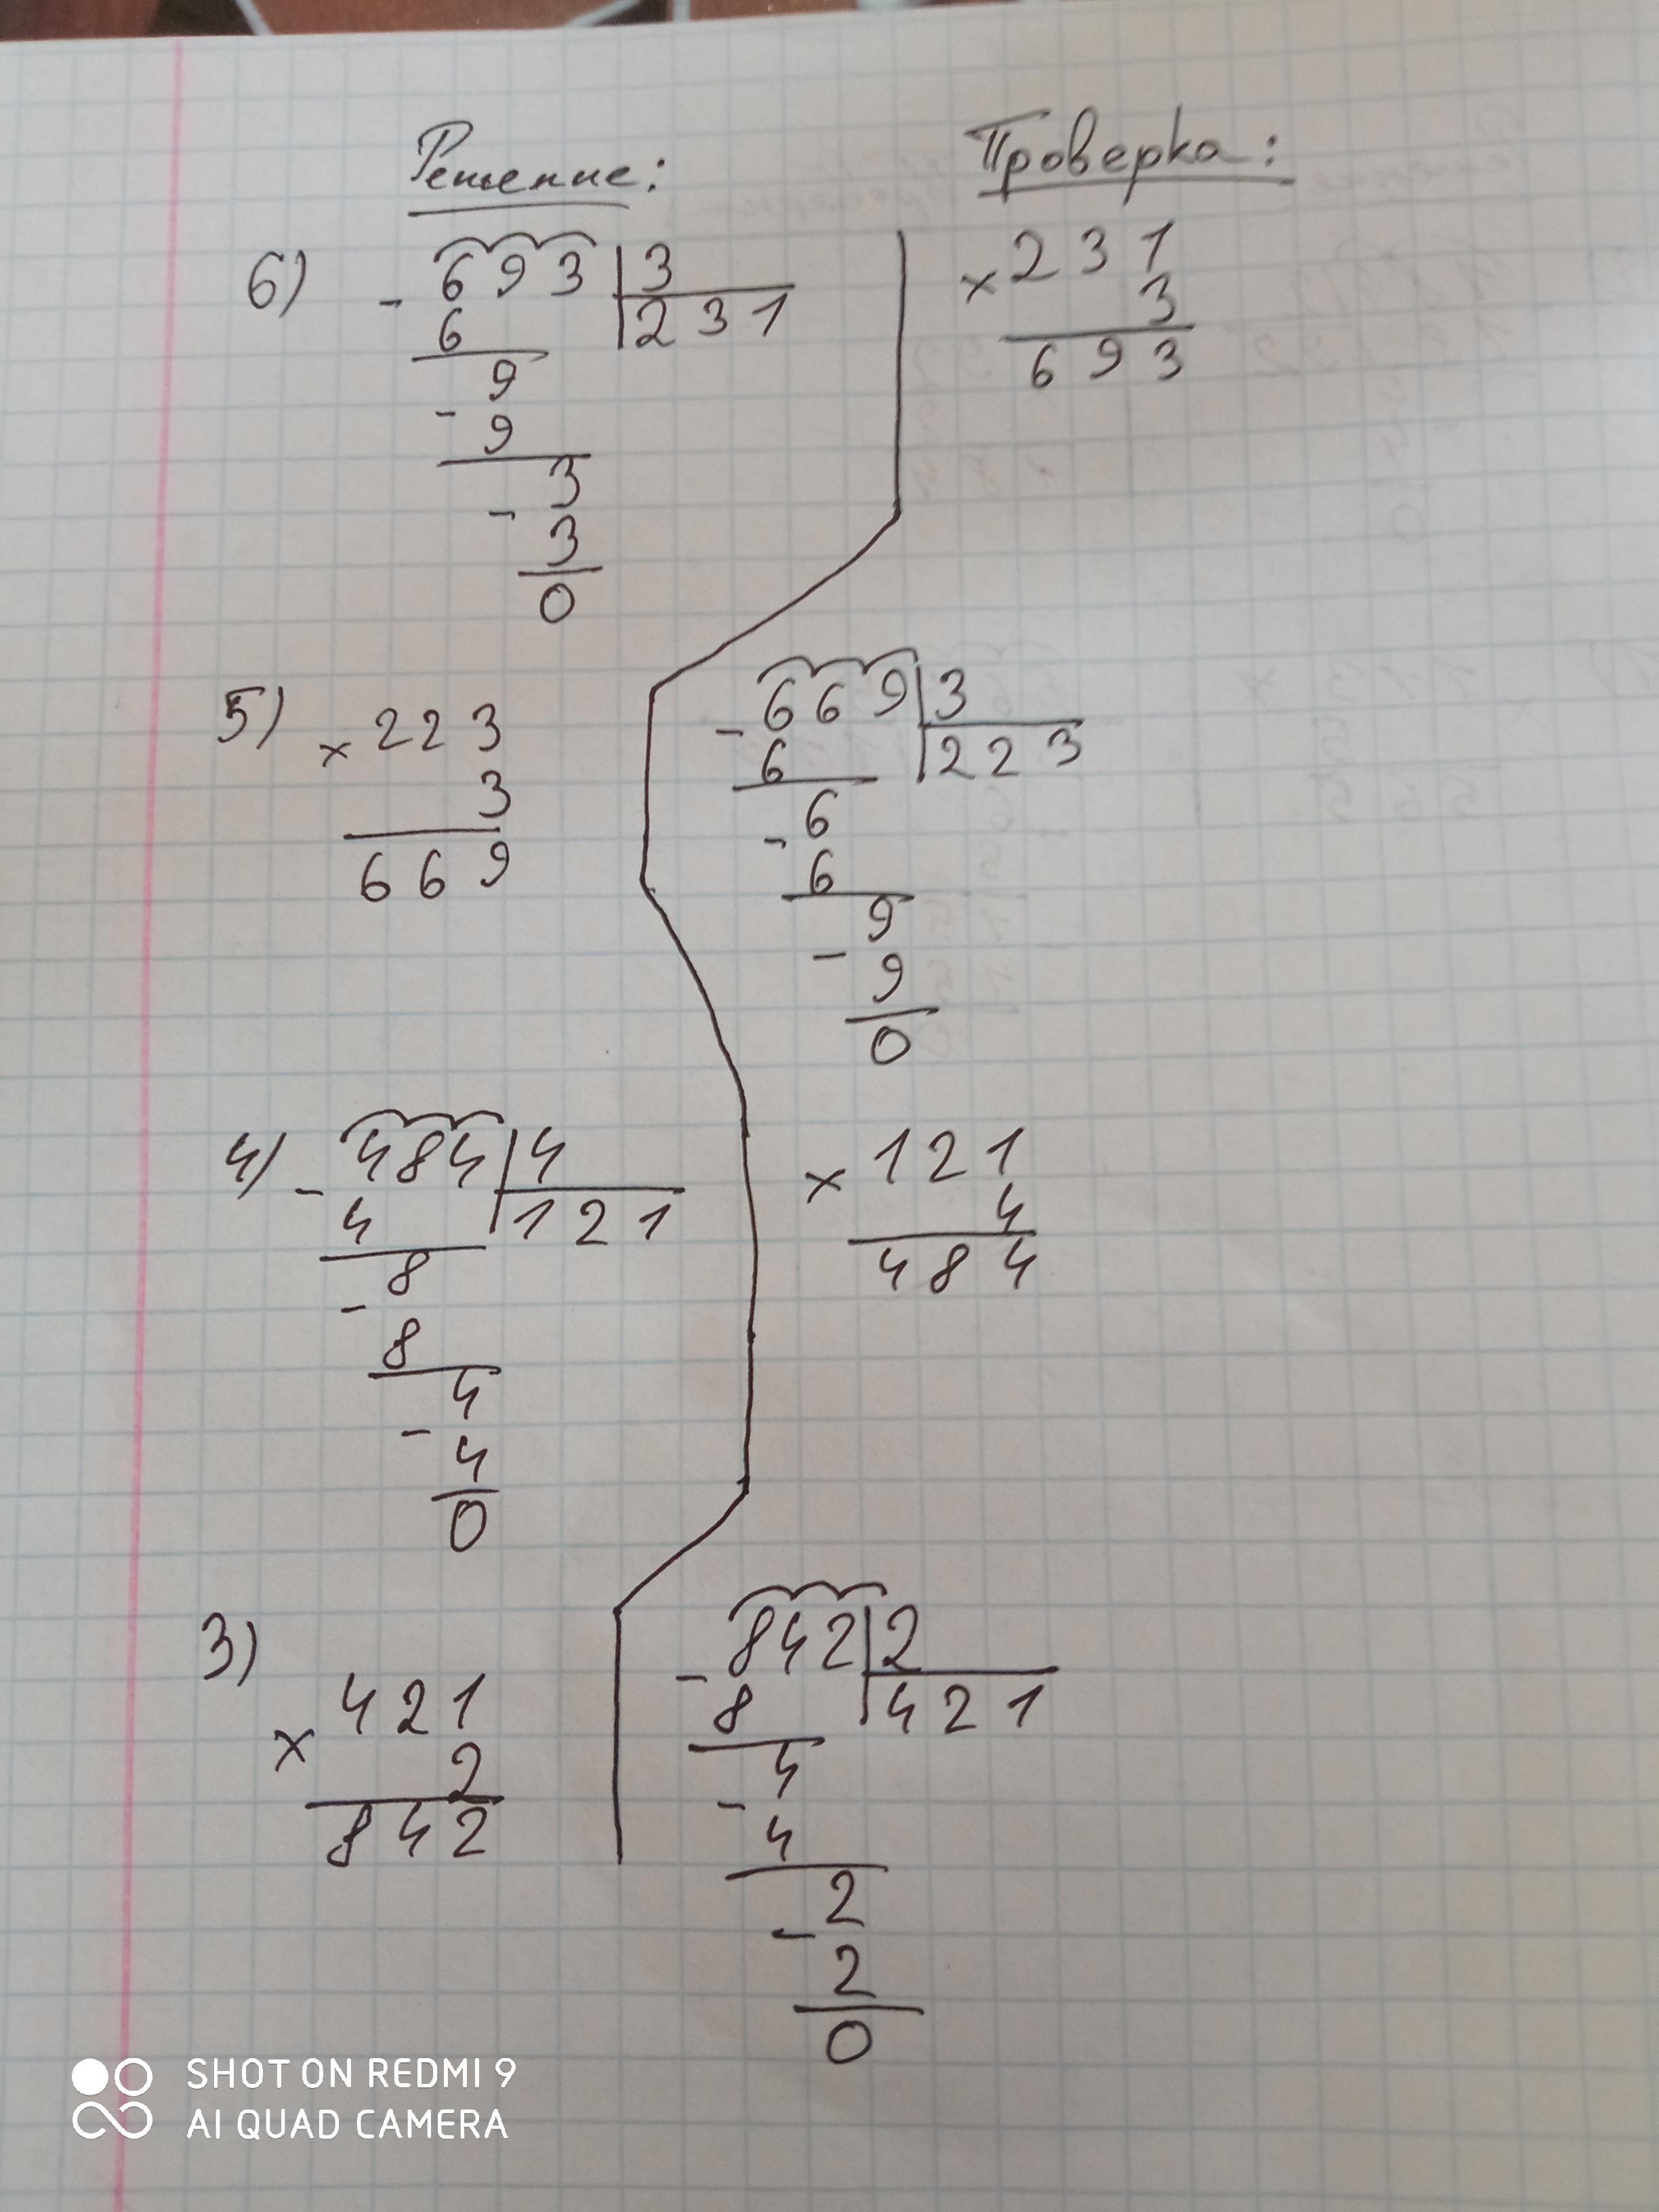 Решение:
Проверка:
6) - 693 | 3
6 | 231
9
- 9
3
- 3
0
× 231
3
693
5) × 223
3
669
- 669 | 3
6 | 223
6
- 6
9
- 9
0
4) - 484 | 4
4 | 121
8
- 8
4
- 4
0
× 121
4
484
3)
× 421
2
842
- 842 | 2
8 | 421
4
- 4
2
- 2
0
SHOT ON REDMI 9
AI QUAD CAMERA